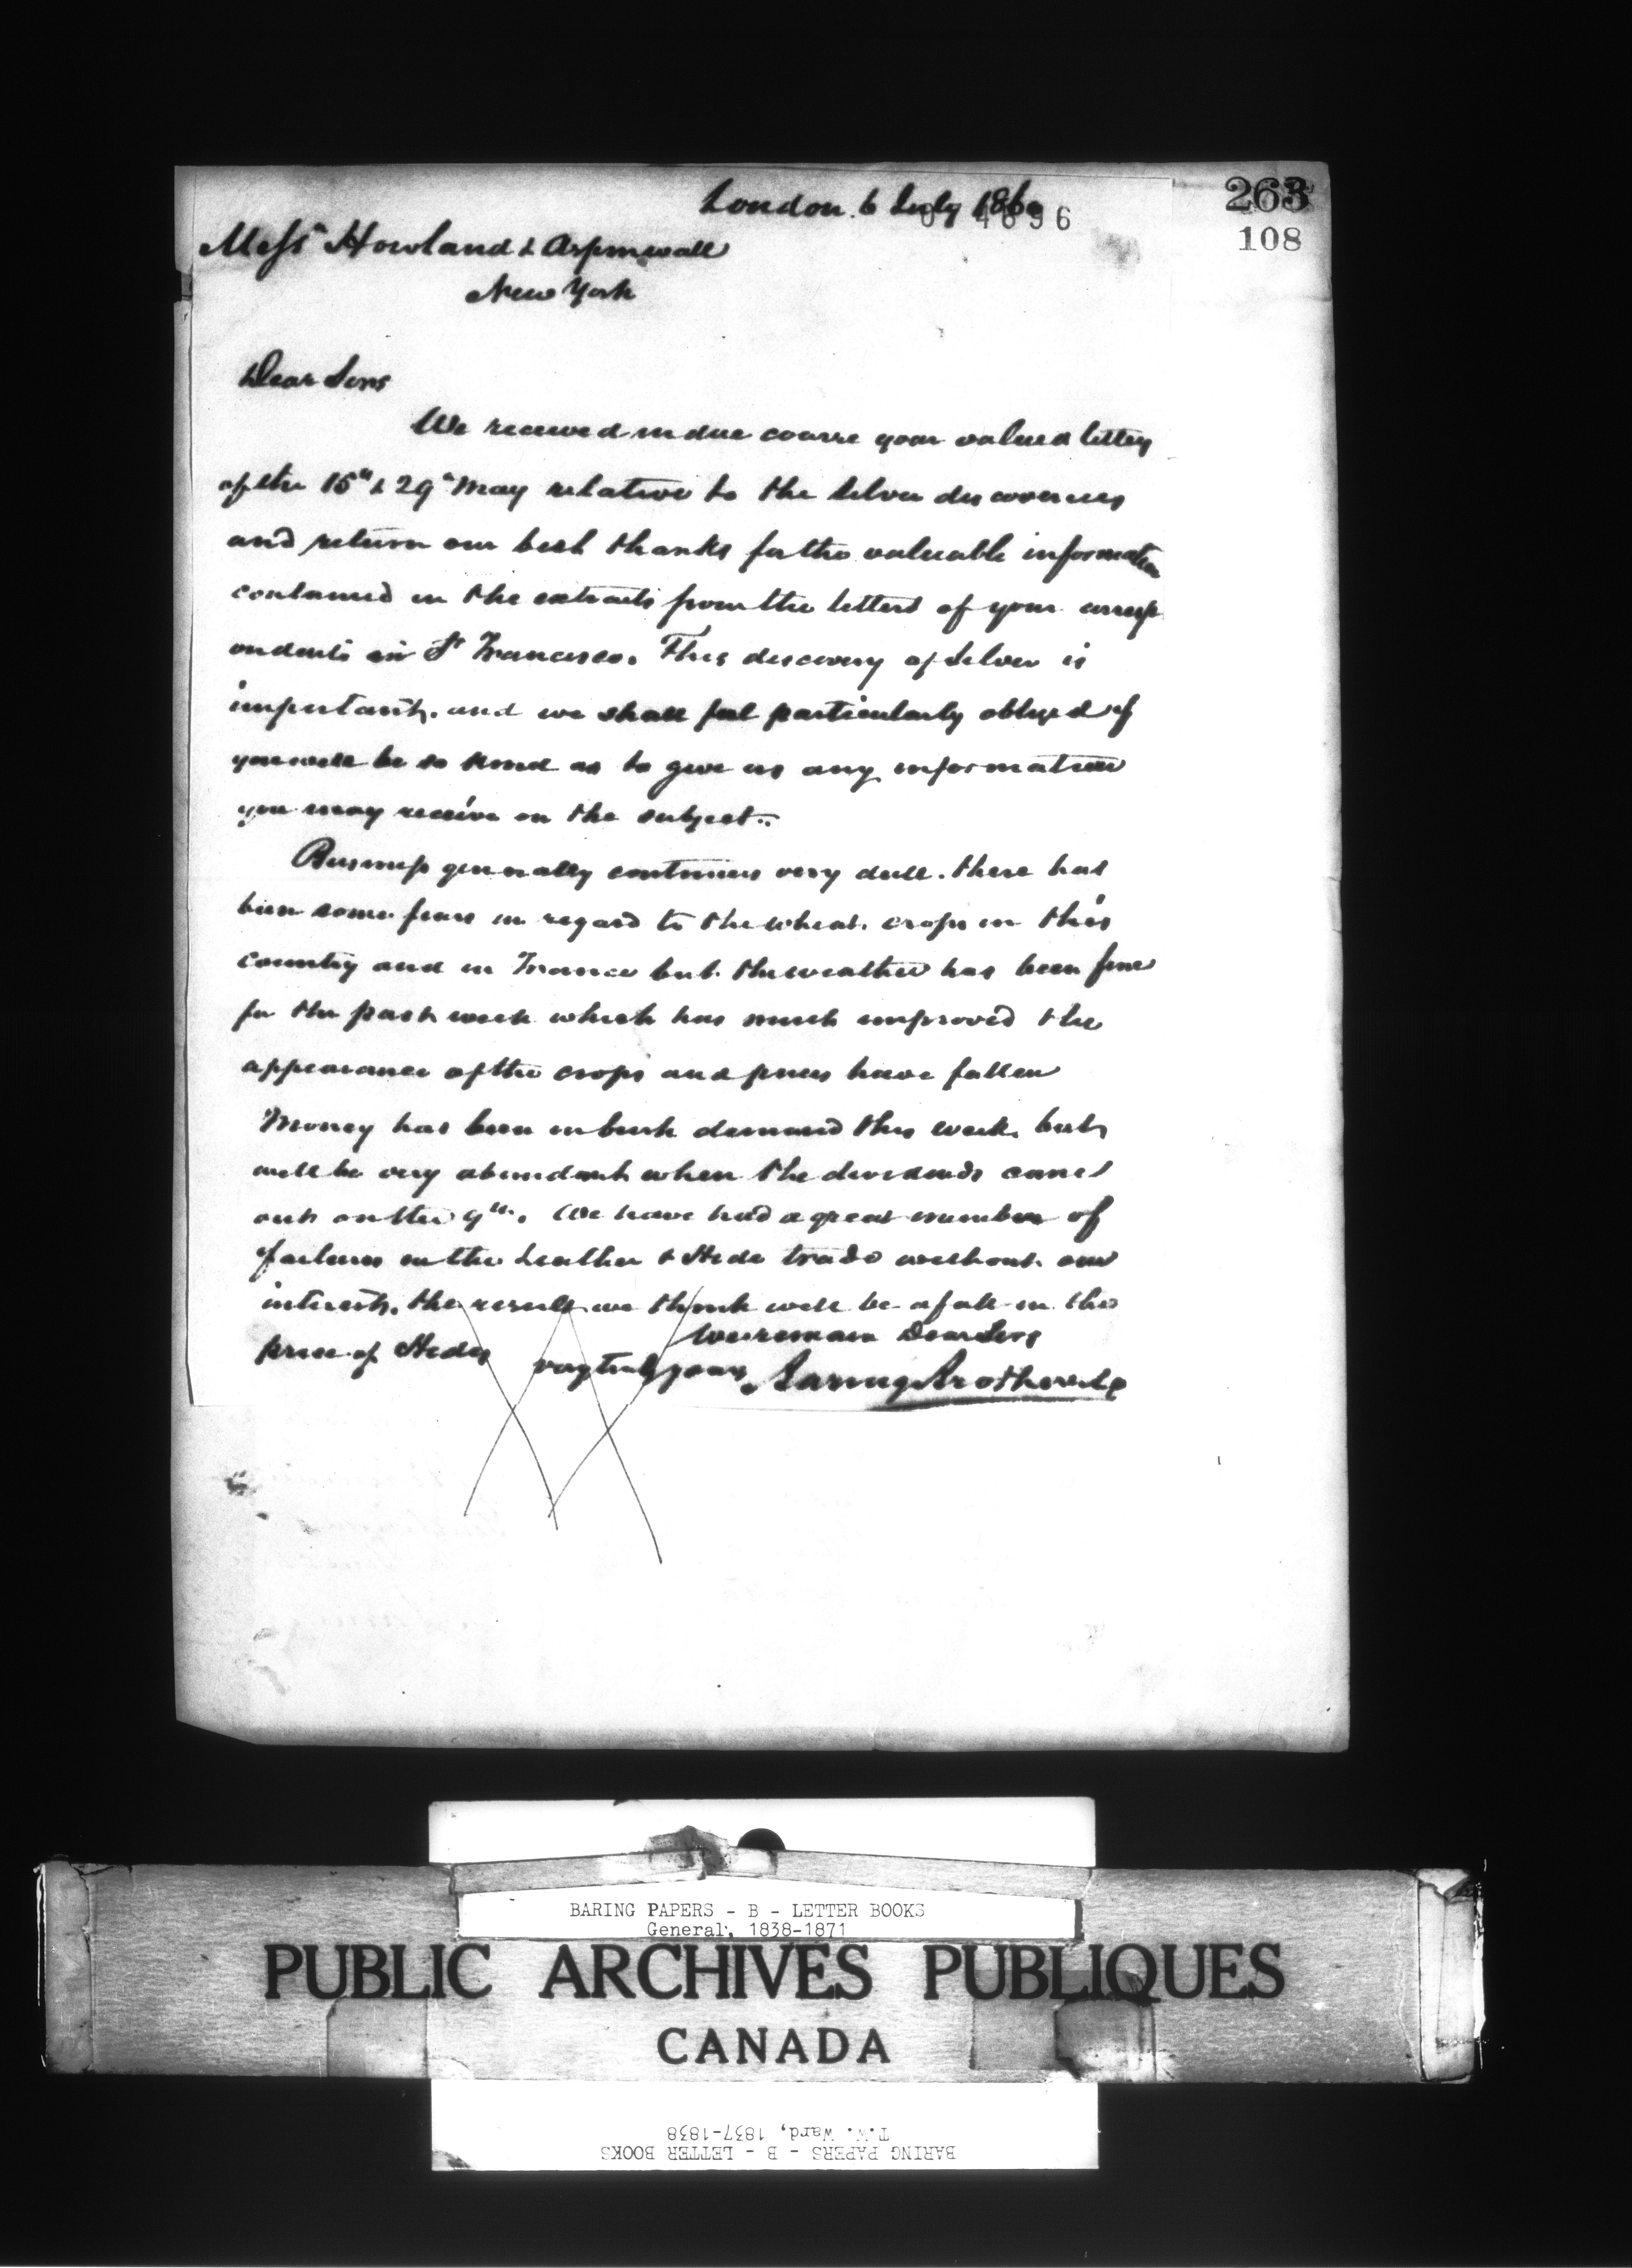 263
108
London 6 July 1860
04696
Mess^rs Howland & Aspinwall
New York
Dear Sirs
We received in due course your valued letters
of the 15th & 29th May relative to the Silver discoveries
and return our best thanks for the valuable information
contained in the extracts from the letters of your corresp
ondents in S^n Francisco. This discovery of Silver is
important, and we shall feel particularly obliged if
you will be so kind as to give us any information
you may receive on the subject.
Business generally continues very dull. there has
been some fears in regard to the wheat crops in this
country and in France but the weather has been fine
for the past week which has much improved the
appearance of the crops and prices have fallen
Money has been in brisk demand this week but
will be very abundant when the dividends come
out on the 9th. We have had a great number of
failures in the Leather & Hide trade without our
interest, the result we think will be a fall in the
price of Hides
We remain Dear Sirs
very truly yours Baring Brothers & Co
BARING PAPERS - B - LETTER BOOKS
General, 1838-1871
PUBLIC ARCHIVES PUBLIQUES
CANADA
T.W. Ward, 1837-1838
BARING PAPERS - B - LETTER BOOKS